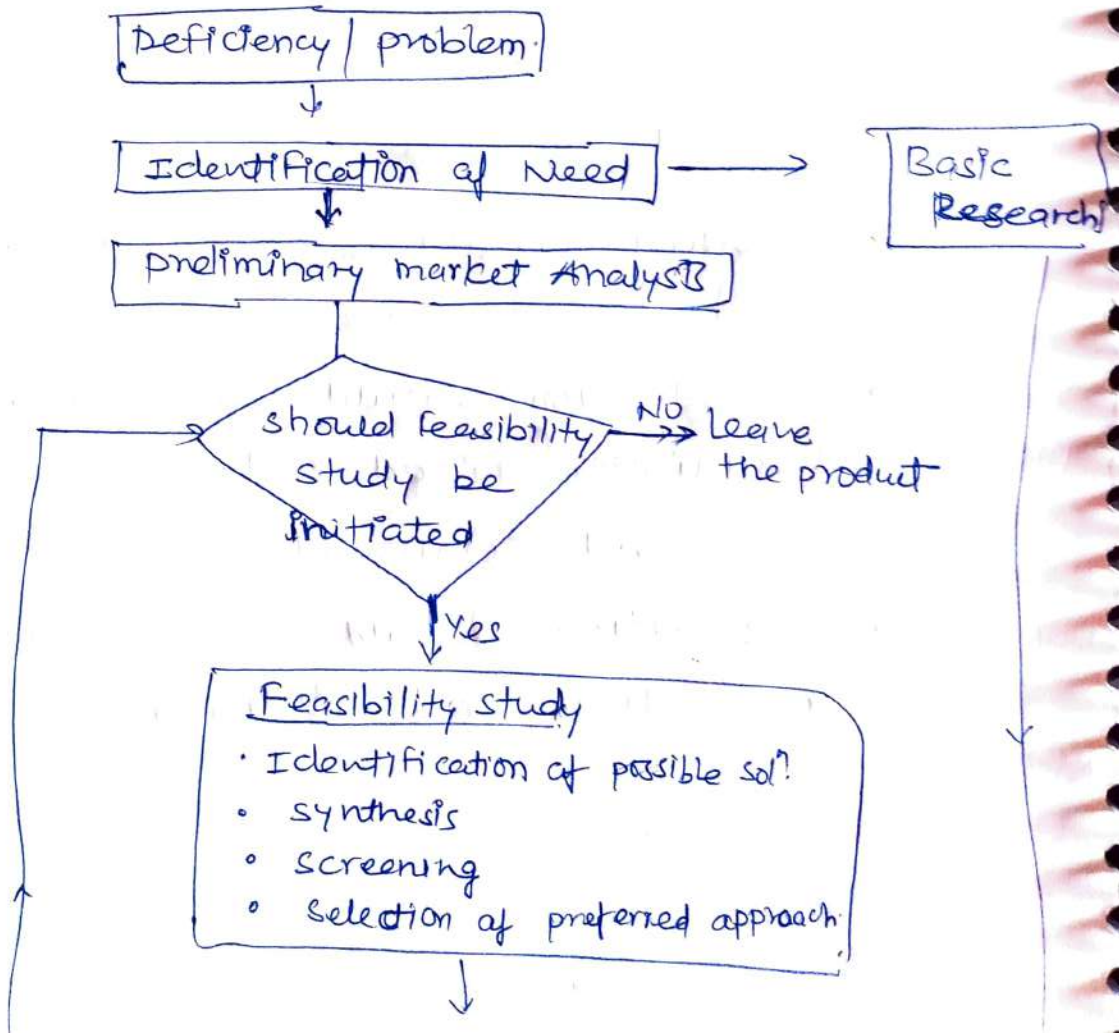 Deficiency / problem.
Identification of Need
Basic
Research
preliminary market Analysis
should feasibility
study be
initiated
NO
Leave
the product
Yes
Feasibility study
· Identification of possible solⁿ.
• synthesis
• screening
• selection of preferred approach.